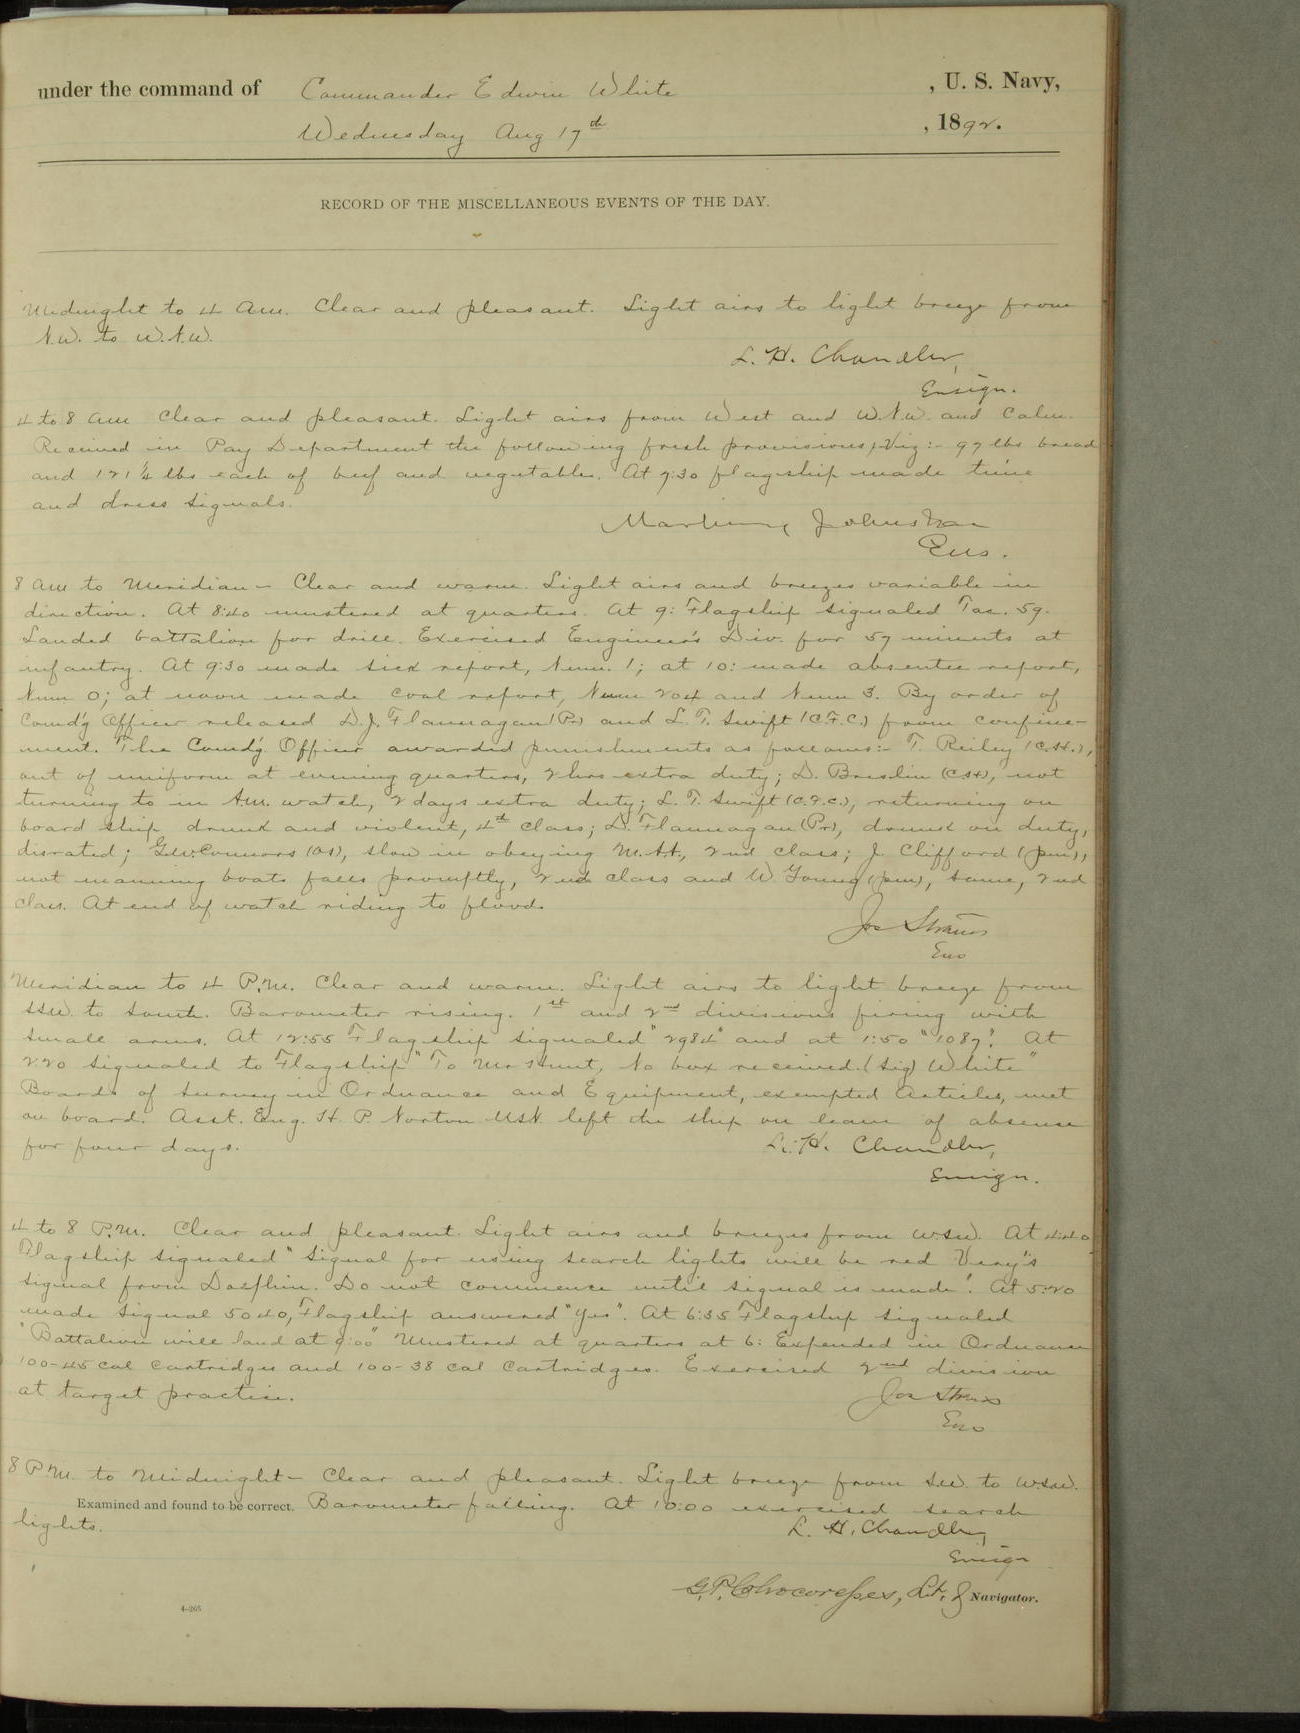 under the command of Commander Edwin White , U. S. Navy,
Wednesday Aug 17th , 1892.
RECORD OF THE MISCELLANEOUS EVENTS OF THE DAY.
Midnight to 4 Am. Clear and pleasant. Light airs to light breeze from
N.W. to W.N.W.
L. H. Chandler,
Ensign.
4 to 8 am Clear and pleasant. Light airs from West and W.N.W. and Calm.
Received in Pay Department the following fresh provisions, Viz:- 97 lbs bread
and 121 1/4 lbs each of beef and vegetables. At 7:30 flagship made time
and dress signals.
Marbury Johnston
Ens.
8 am to Meridian - Clear and warm. Light airs and breezes variable in
direction. At 8:40 mustered at quarters. At 9: Flagship signaled Tac. 59.
Landed battalion for drill. Exercised Engineer's Div. for 57 minuts at
infantry. At 9:30 made sick report, Num. 1; at 10: made absentee report,
Num 0; at noon made coal report, Num 204 and Num 3. By order of
Comd'g Officer released D. J. Flannagan (Pr) and L. T. Swift (C.F.C.) from confine-
ment. The Comd'g Officer awarded punishments as follows:- T. Reiley (C.H.),
out of uniform at evening quarters, 2 hrs extra duty; D. Breslin (CH), not
turning to in A.M. watch, 2 days extra duty; L. T. Swift (C.F.C.), returning on
board ship drunk and violent, 4th class; D. Flannagan (Pr), drunk on duty,
disrated; Geo. Connors (OS), slow in obeying M.A.A, 2nd class; J. Clifford (pm),
not manning boats falls promptly, 2nd class and W Young (pm), same, 2nd
class. At end of watch riding to flood.
Jos Strauss
Ens
Meridian to 4 P.M. Clear and warm. Light airs to light breeze from
SSW. to South. Barometer rising. 1st and 2nd divisions firing with
small arms. At 12:55 Flagship signaled "2984" and at 1:50 "1087". At
2:20 signaled to Flagship "To Mr Hunt, No box received. (Sig) White"
Boards of Survey in Ordnance and Equipment, exempted Articles, met
on board. Asst. Eng. H. P. Norton USN left the ship on leave of absense
for four days.
L. H. Chandler,
Ensign.
4 to 8 P.M. Clear and pleasant. Light airs and breezes from WSW. At 4:40
Flagship signaled "Signal for using search lights will be red Very's
signal from Dolphin. Do not commence until signal is made". At 5:20
made signal 5040, Flagship answered "Yes". At 6:35 Flagship signaled
"Battalion will land at 9:00" Mustered at quarters at 6: Expended in Ordnance
100-45 cal cartridges and 100-38 cal Cartridges. Exercised 2nd division
at target practice.
Jos Strauss
Ens
8 P.M. to Midnight - Clear and pleasant. Light breeze from SW. to WSW.
Examined and found to be correct. Barometer falling. At 10:00 exercised search
lights.
L. H. Chandler,
Ensign
G. P. Colvocoresses, Lt. & Navigator.
4-265